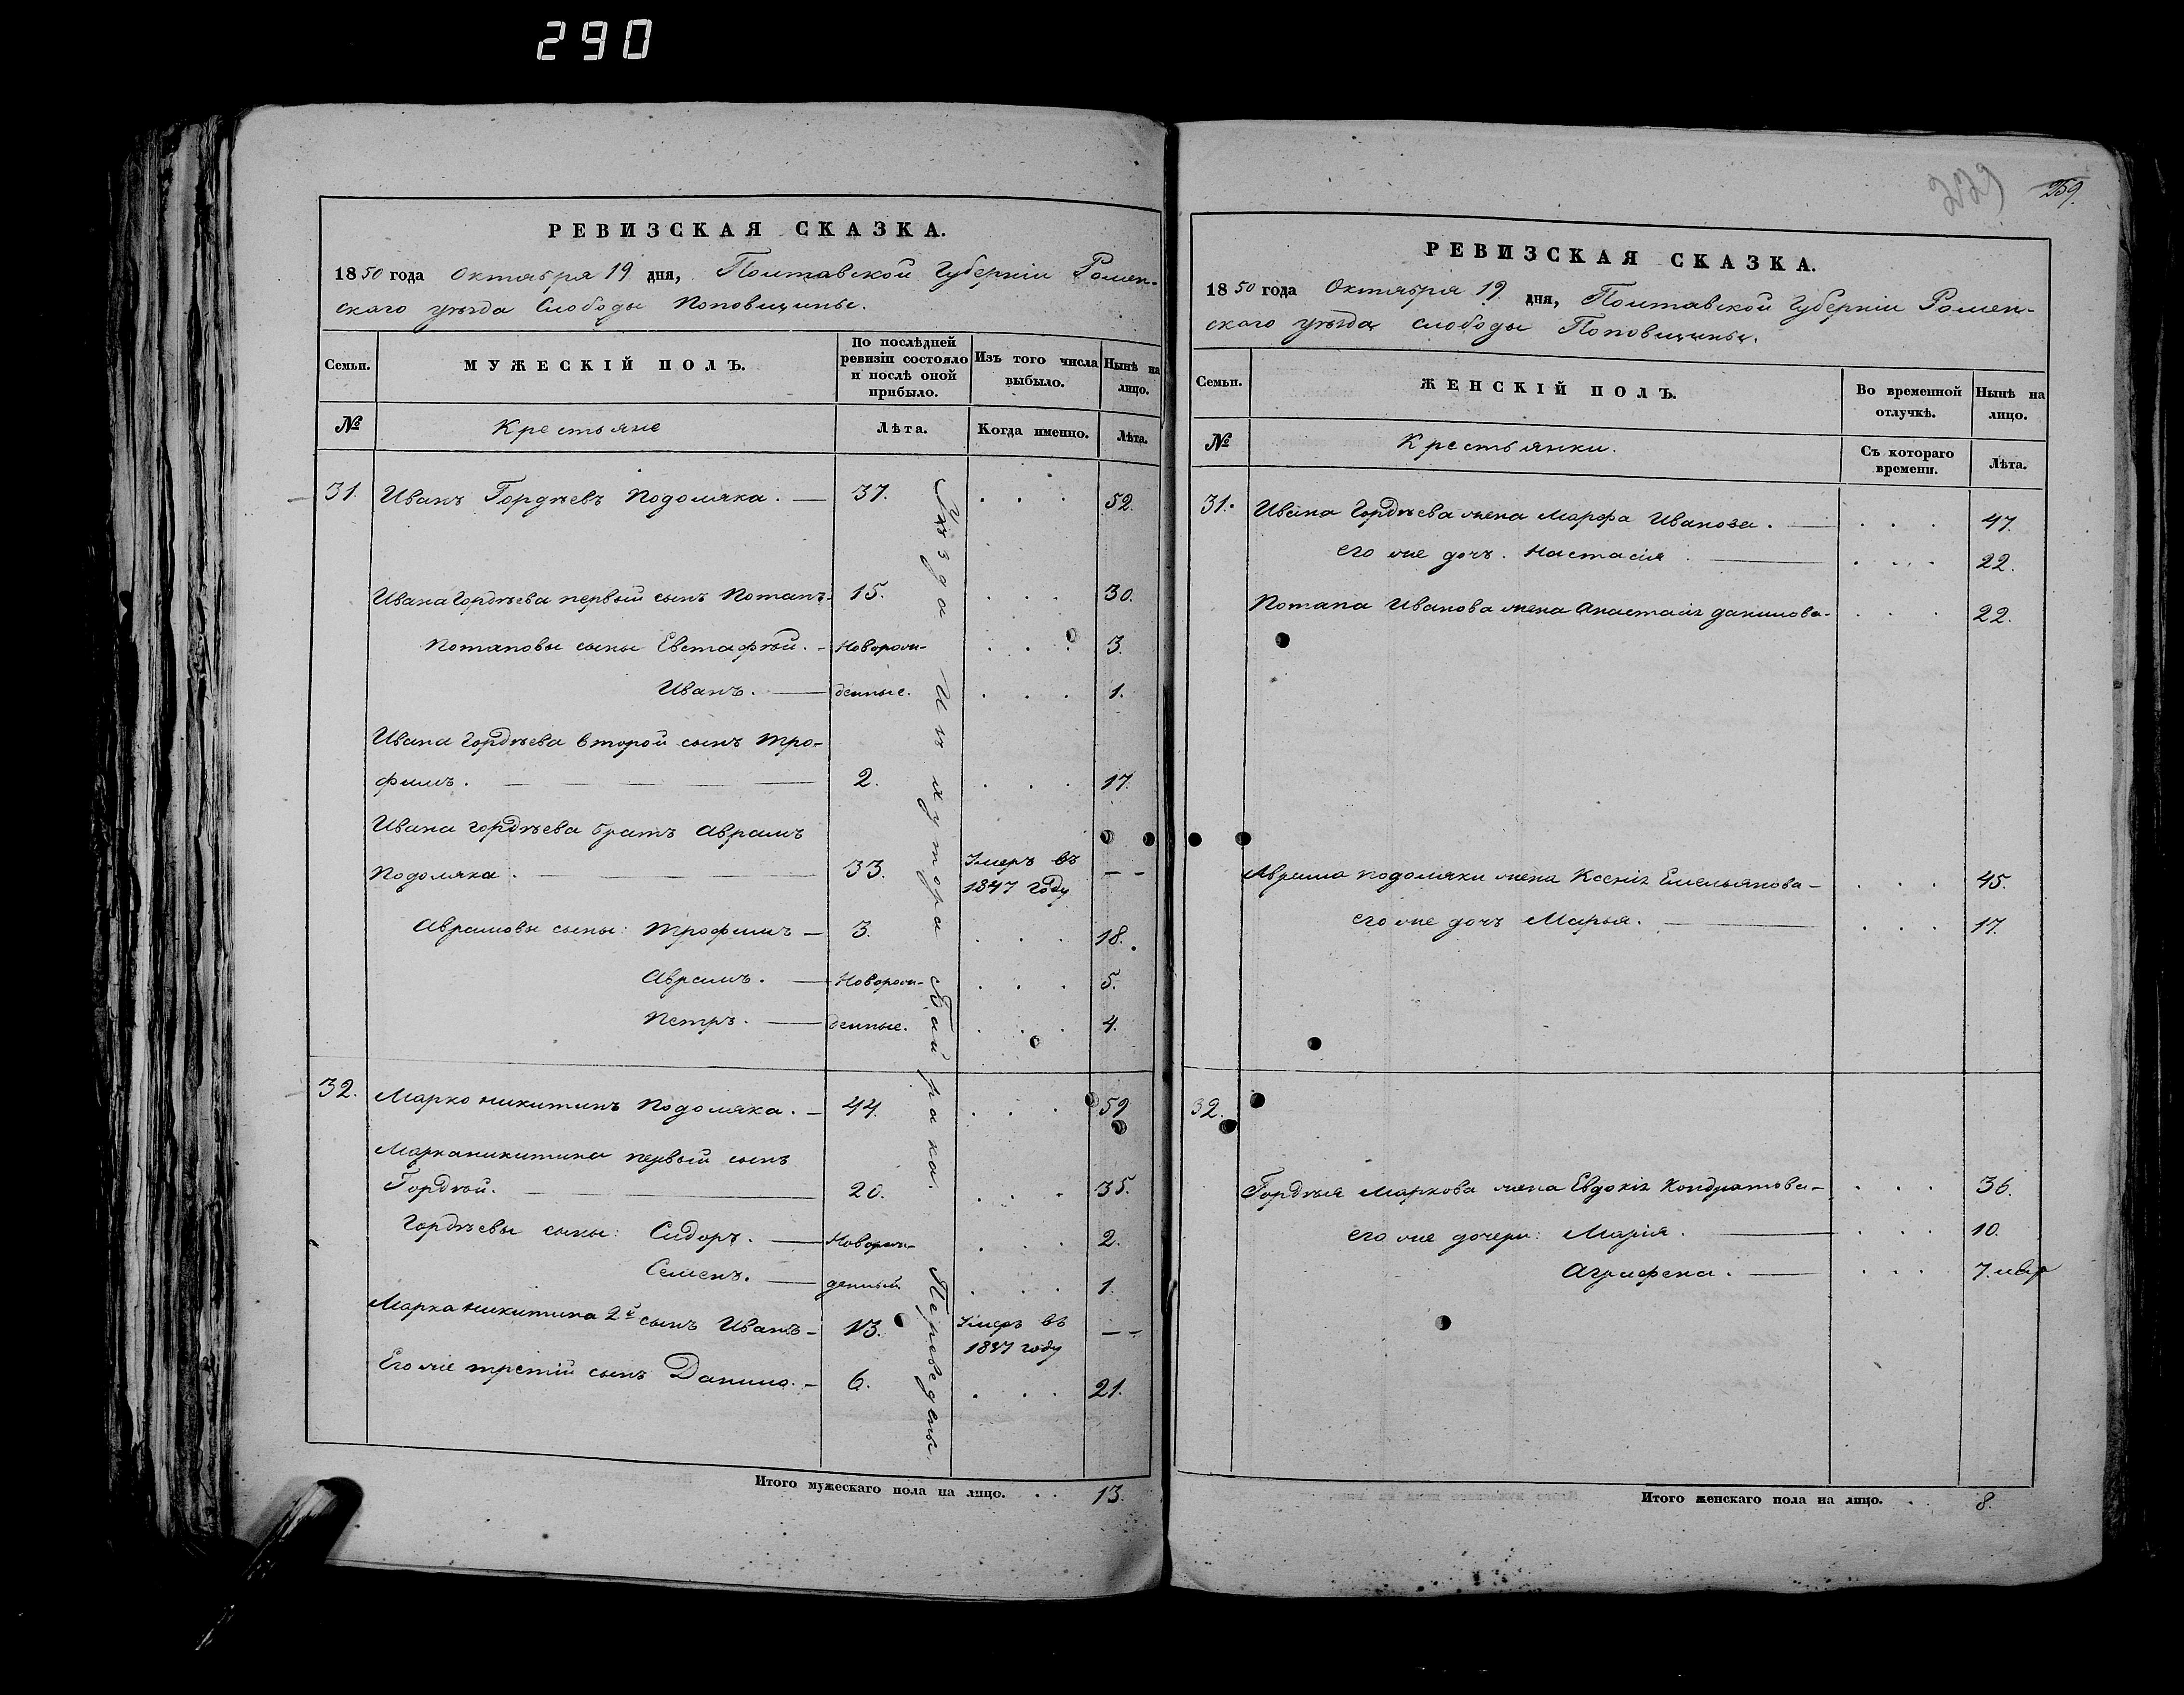 290
РЕВИЗСКАЯ СКАЗКА.
1850 года Октября 19 дня, Полтавской Губерніи Ромен-
ского уѣзда Слободы Поповщины.
Семьи.
МУЖЕСКІЙ ПОЛЪ.
По послѣдней ревизіи состояло и послѣ оной прибыло.
Изъ того числа выбыло.
Нынѣ на лицо.
№
Крестьяне
Лѣта.
Когда именно.
Лѣта.
31. Иванъ Гордѣевъ Подоляка. — 37. . . . 52.
Ивана Гордѣева первый сынъ Потапъ- 15. . . . 30.
Потаповы сыны Евстафѣй. - Наворож- . . . 3.
Иванъ. — денные. . . . 1.
Ивана Гордѣева второй сынъ Тро-
фимъ. — 2. . . . 17.
Ивана Гордѣева братъ Аврамъ
Подоляка. — 33. Умеръ въ 1847 году — -
Аврамовы сыны: Трофимъ — 3. . . . 18.
Аврамъ. — Новорож- . . . 5.
Петръ. — денные. . . . 4.
32. Марко Никитинъ Подоляка. — 44. . . . 59
Марка Никитина первый сынъ
Гордѣй. — 20. . . . 35.
Гордѣевы сыны: Сидоръ. — Новорож- . . . 2.
Семенъ. — денный . . . 1.
Марка Никитина 2й сынъ Иванъ- 13. Умеръ въ 1837 году — -
Его же третій сынъ Данило. - 6. . . . 21.
Переведены
Уѣзда
Изъ хутора
Итого мужескаго пола на лицо. . . 13.
259.
РЕВИЗСКАЯ СКАЗКА.
1850 года Октября 19. дня, Полтавской Губерніи Ромен-
ского уѣзда слободы Поповщины.
Семьи.
ЖЕНСКІЙ ПОЛЪ.
Во временной отлучкѣ.
Нынѣ на лицо.
№
Крестьянки.
Съ котораго времени.
Лѣта.
31. Ивана Гордѣева жена Марфа Иванова. — . . . 47.
его же дочь. Настасія — . . . 22.
Потапа Иванова жена Анастасія Данилова- . . . 22.
Аврама Подоляки жена Ксенія Емельянова — . . . 45.
его же дочь Марья. — . . . 17.
32.
Гордѣя Маркова жена Евдокія Кондратова — . . . 36.
его же дочери: Марія. — . . . 10.
Агрифена. — . . . 7.
Итого женскаго пола на лицо. . 8.